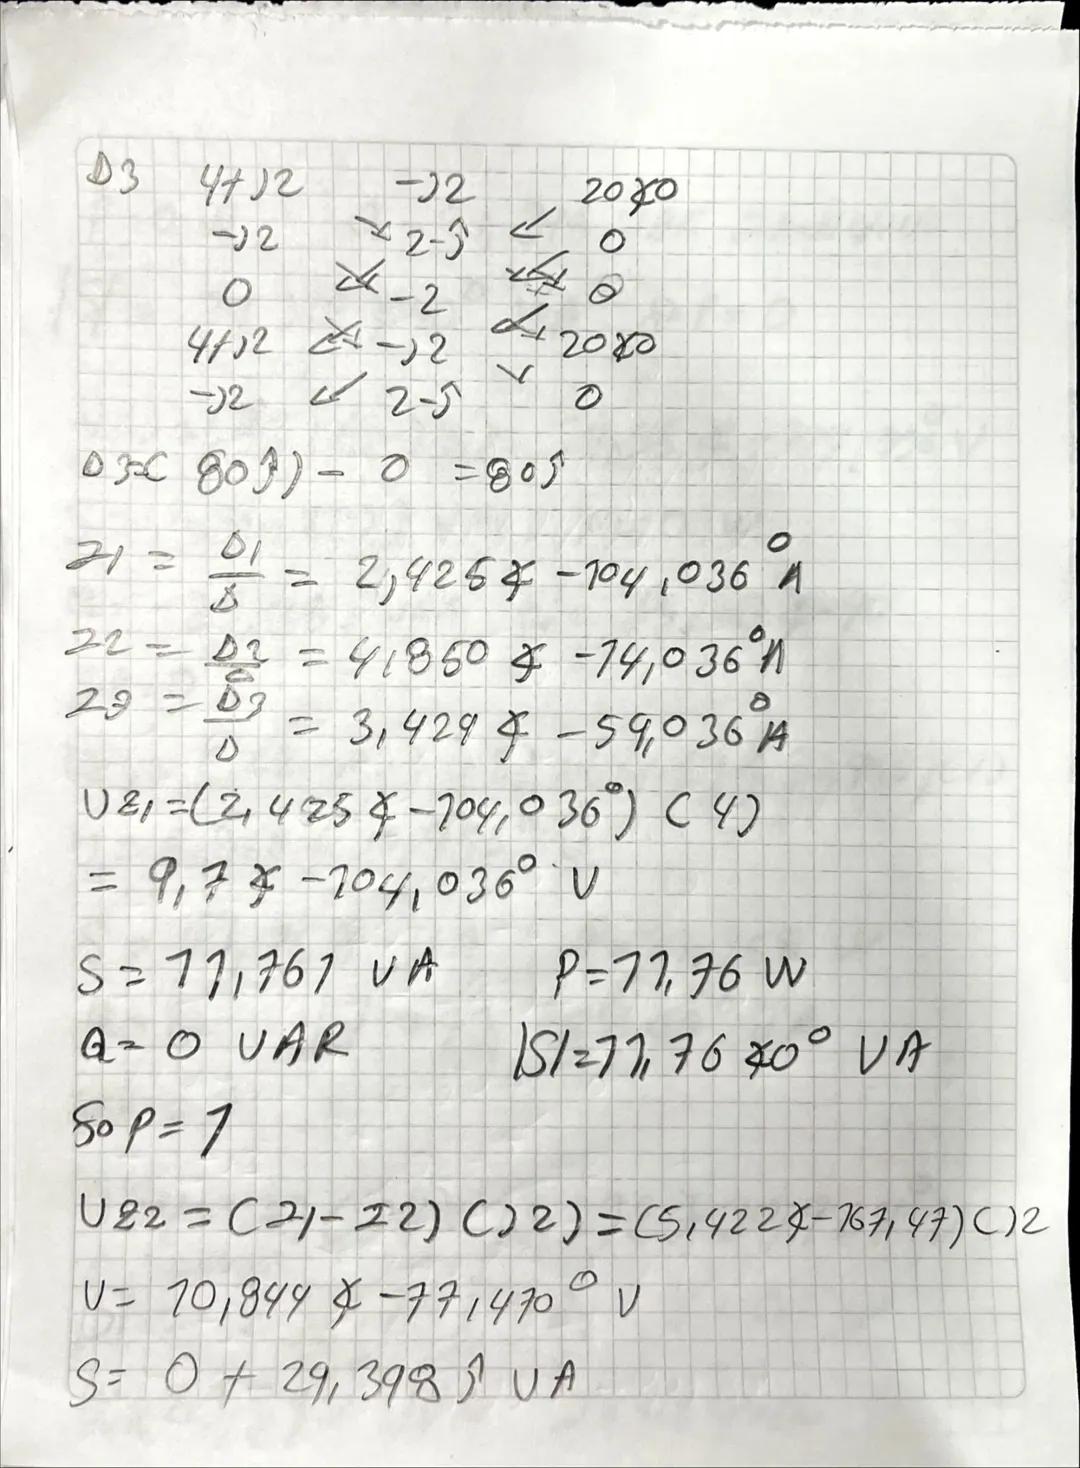 D3 4+j2 -j2 20∡0
-j2 2-j 0
0 -2 0
4+j2 -j2 20∡0
-j2 2-j 0
D3=( 80j) - 0 = 80j
I1 = D1/D = 2,425∡ -104,036° A
I2 = D2/D = 4,850 ∡ -14,036° A
I3 = D3/D = 3,429 ∡ -59,036° A
VZ1 = (2,425∡ -104,036°) (4)
= 9,7∡ -104,036° V
S = 11,761 VA P = 11,76 W
Q = 0 VAR |S| = 11,76 ∡0° VA
fp = 1
VZ2 = (I1 - I2) (j2) = (5,422∡-167,47) (j2
V = 10,844 ∡ -77,470° V
S = 0 + 29,398 j VA